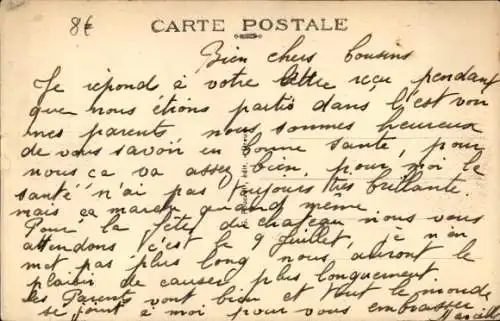 8€
CARTE POSTALE
Bien chers Cousins
Je répond à votre lettre reçu pendant
que nous étions partis dans l'est voir
mes parents nous sommes heureux
de vous savoir en bonne santé, pour
nous ça va assez bien, pour moi la
santé n'ai pas toujours très brillante.
mais ça marche quand même.
Pour la fête du chateau nous vous
attendons c'est le 9 Juillet, je n'en
met pas plus long nous auront le
plaisir de causer plus longuement.
les Parents vont bien et tout le monde
se joint à moi pour vous embrasser